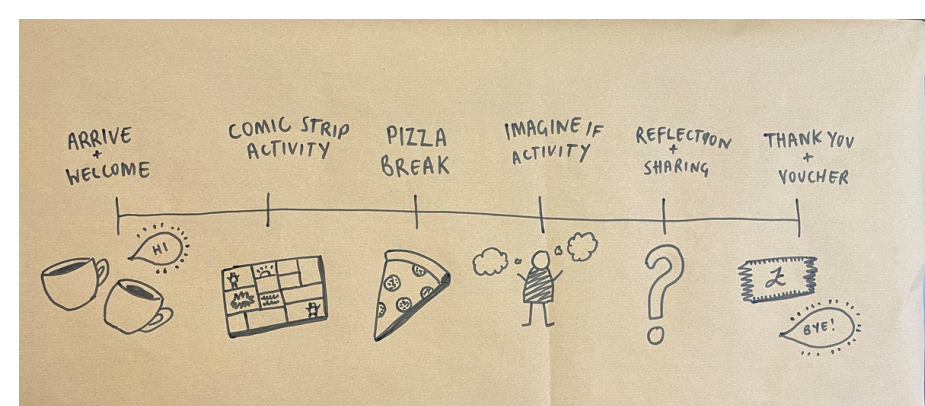 ARRIVE
+
WELCOME
COMIC STRIP
ACTIVITY
PIZZA
BREAK
IMAGINE IF
ACTIVITY
REFLECTION
+
SHARING
THANK YOU
+
VOUCHER
HI
£
BYE!